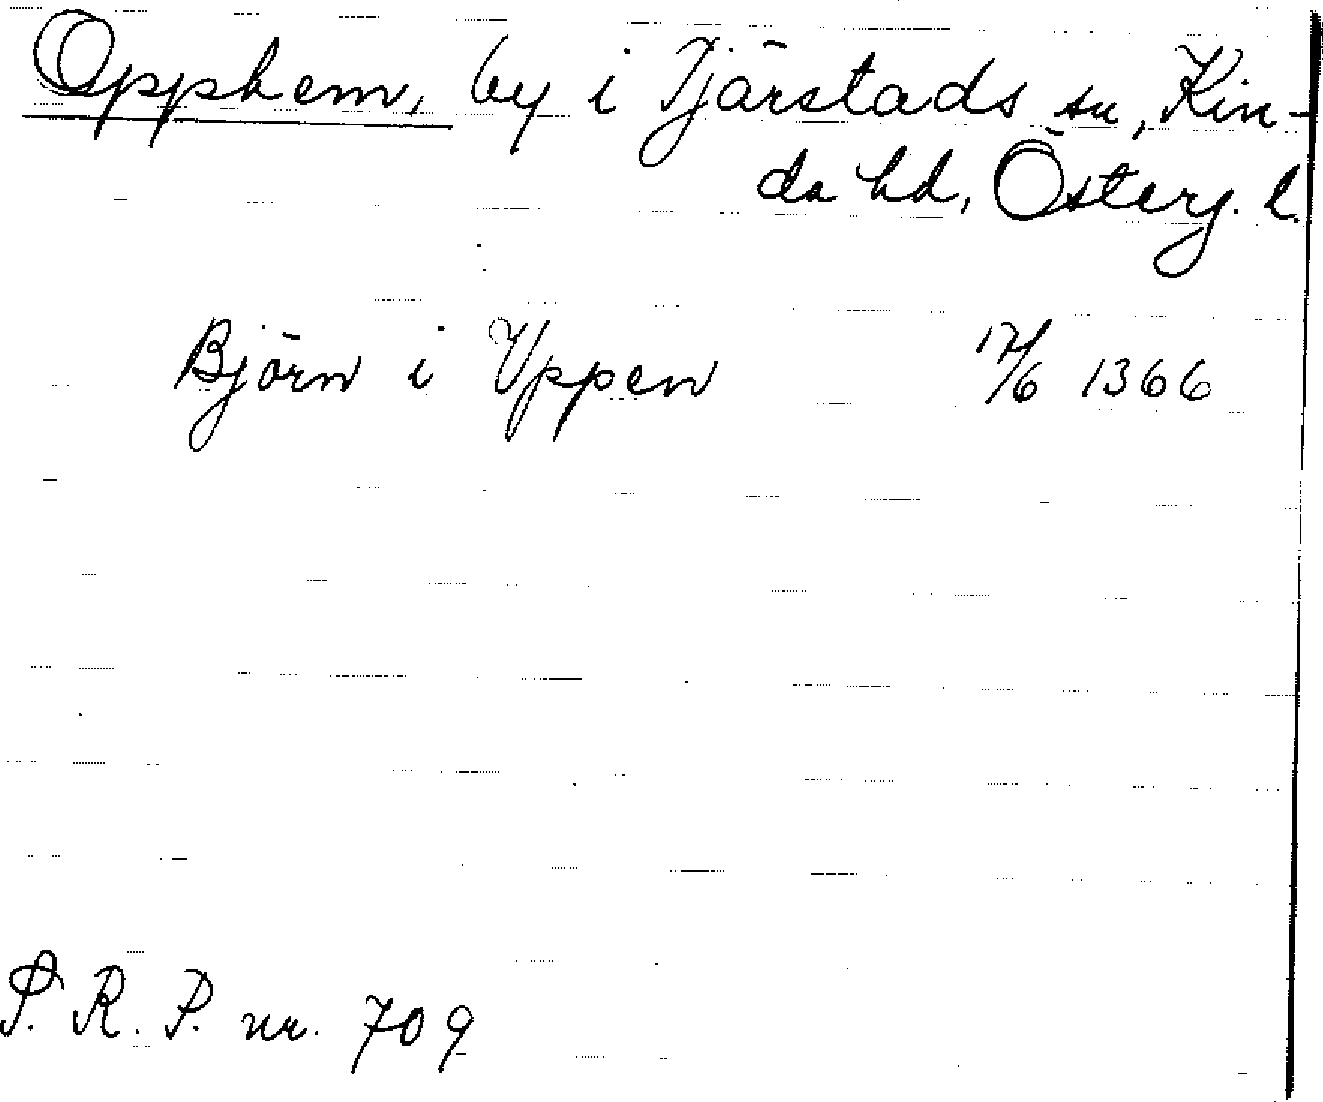 Opphem, by i Tjärstads sn, Kin-
da hd, Österg. l.
Björn i Vppen 17/6 1366
P. R. P. nr. 709